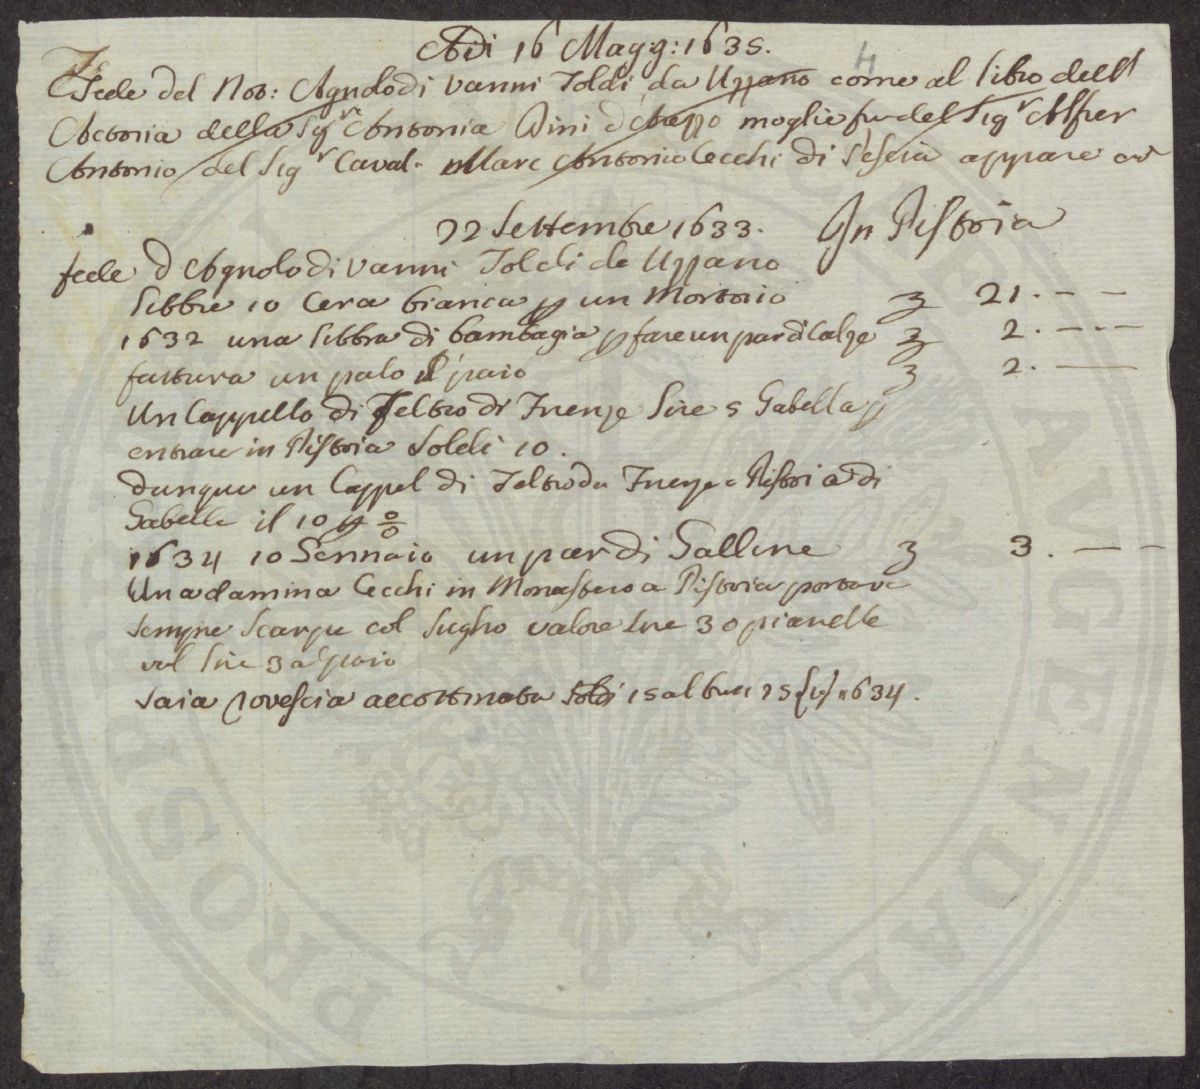 Adi 16 Magg: 1635.
4
Fede del Not: Agnolo di Vanni Toldi da Uzzano come al libro dell
della Sigra Antonia Dini d moglie fu del Sigr Alfier
Antonio del Sigr Caval. Marc Antonio Cecchi di Pescia appare
22 Settembre 1633. In Pistoia
fede d Agnolo di Vanni Toldi da Uzzano
Libbre 10 Cera bianca p un Mortorio 21. — —
1632 una Libbra di bambagia p fare un par di Calze 2. — —
fattura un paio 2. —
Un Cappello di feltro di Firenze Lire 5 Gabella p
entrare in Pistoia Soldi 10.
dunque un Cappel di feltro da Firenze a Pistoia di
Gabella il 10 p %
1634 10 Gennaio un par di Galline 3. — —
Una dammina Cecchi in Monastero a Pistoia portava
sempre Scarpe col Sughero valore Lire 3 o pianelle
Lire 3 a paio
Saia rovescia accottonata Soldi 15 al br. 1634.
PROSPERITATI PUBLICAE AVGENDAE